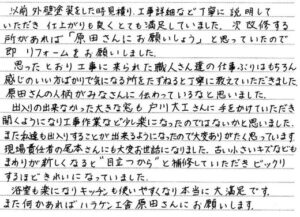 以前外壁塗装をした時見積り、工事詳細など丁寧に説明して
いただき仕上がりも良くとても満足していました。次改修する
所があれば「原田さんにお願いしよう」と思っていたので
即リフォームをお願いしました。
思ったとおり工事に来られた職人さん達の仕事ぶりはもちろん
感じのいい方ばかりで気になる所をたずねると丁寧に教えていただきました
原田さんの人柄がみなさんに伝わっているなと思いました。
出入りの出来なかった大きな窓も戸川大工さんに手をかけていただき
開くようになり工事作業などタレ楽になったのではないかと思いました。
また私達も出入りすることが出来るようになったので大変ありがたく思っています
現場責任者の尾本さんにも大変お世話になりました。古い小さいキズなども
まわりが新しくなると"目立つから"と補修していただきビックリ
するほどきれいになっていました。
浴室も楽になりキッチンも使いやすくなり本当に大満足です。
また何かあればハラケン工舎原田さんにお願いします。